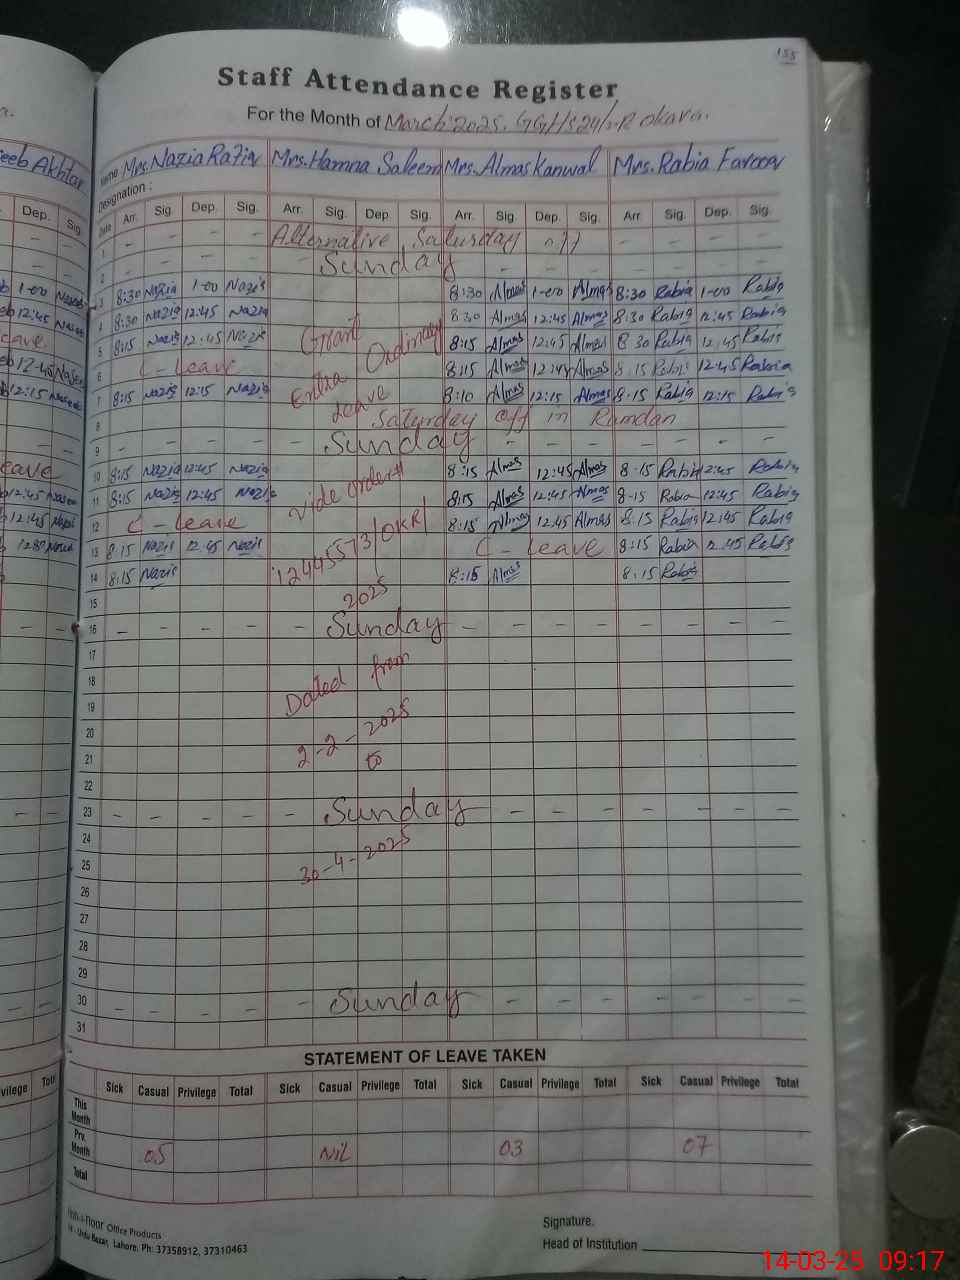 155
Staff Attendance Register
For the Month of March 2025. GGHS 24/2-R Okara.
eeb Akhtar Name: Mrs. Nazia Rafiq Mrs. Hamna Saleem Mrs. Almas Kanwal Mrs. Rabia Farooq
Designation :
Dep. Sig. Date Arr. Sig. Dep. Sig. Arr. Sig. Dep. Sig. Arr. Sig. Dep. Sig. Arr. Sig. Dep. Sig.
1 - - - - Alternative Saturday off - - - -
2 - - - - Sunday - - - - - - - -
1-00 Naseeb 3 8:30 Nazia 1-00 Nazia 8:30 Almas 1-00 Almas 8:30 Rabia 1-00 Rabia
12:45 Naseeb 4 8:30 Nazia 12:45 Nazia 8 30 Almas 12:45 Almas 8:30 Rabia 12:45 Rabia
eave 5 8:15 Nazia 12:45 Nazia Grant Ordinary 8:15 Almas 12:45 Almas 8 30 Rabia 12:45 Rabia
12-45 Naseeb 6 C - leave Extra 8:15 Almas 12:45 Almas 8.15 Rabia 12:45 Rabia
12:15 Naseeb 7 8:15 Nazia 12:15 Nazia Leave 8:10 Almas 12:15 Almas 8.15 Rabia 12:15 Rabia
8 Saturday off in Ramdan
9 - - - - Sunday - - - - - - - -
eave 10 8:15 Nazia 12:45 Nazia 8:15 Almas 12:45 Almas 8-15 Rabia 12:45 Rabia
12:45 Naseeb 11 8:15 Nazia 12:45 Nazia Vide order# 8:15 Almas 12:45 Almas 8-15 Rabia 12:45 Rabia
12:45 12 C - leave 8:15 Almas 12.45 Almas 8:15 Rabia 12:45 Rabia
13 8:15 Nazia 12:45 Nazia 12445573/OKR/ C - leave 8:15 Rabia 12:45 Rabia
14 8:15 Nazia 8:15 Almas 8:15 Rabia
15 2025
16 - - - - - Sunday - - - - - - - -
17
18 Dated from
19
20 2-2-2025
21 to
22
23 - - - - - Sunday - - - - - - - -
24
25 30-4-2025
26
27
28
29
30 - - - - - Sunday - - - - - - - -
31
STATEMENT OF LEAVE TAKEN
vilege Total Sick Casual Privilege Total Sick Casual Privilege Total Sick Casual Privilege Total Sick Casual Privilege Total
This Month
Prv. Month 05 Nil 03 07
Total
Office Products
Urdu Bazar, Lahore. Ph: 37358912, 37310463
Signature.
Head of Institution
14-03-25 09:17